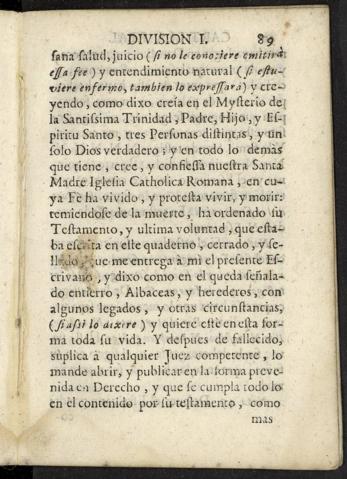 DIVISION I. 89
sana salud, juicio (si no le conociere omitirà
essa fee) y entendimiento natural (si estu-
viere enfermo, tambien lo expressarà) y cre-
yendo, como dixo creía en el Mysterio de
la Santissima Trinidad, Padre, Hijo, y Es-
piritu Santo, tres Personas distintas, y un
solo Dios verdadero: y en todo lo demàs
que tiene, cree, y confiessa nuestra Santa
Madre Iglesia Catholica Romana, en cu-
ya Fe ha vivido, y protesta vivir, y morir:
temiendose de la muerte, ha ordenado su
Testamento, y ultima voluntad, que esta-
ba escrita en este quaderno, cerrado, y se-
llado, que me entrega à mi el presente Es-
crivano, y dixo como en el queda señala-
do entierro, Albaceas, y herederos, con
algunos legados, y otras circunstancias,
(si assi lo dixere) y quiere estè en esta for-
ma toda su vida. Y despues de fallecido,
suplica à qualquier Juez competente, lo
mande abrir, y publicar en la forma preve-
nida en Derecho, y que se cumpla todo lo
en èl contenido por su testamento, como
mas